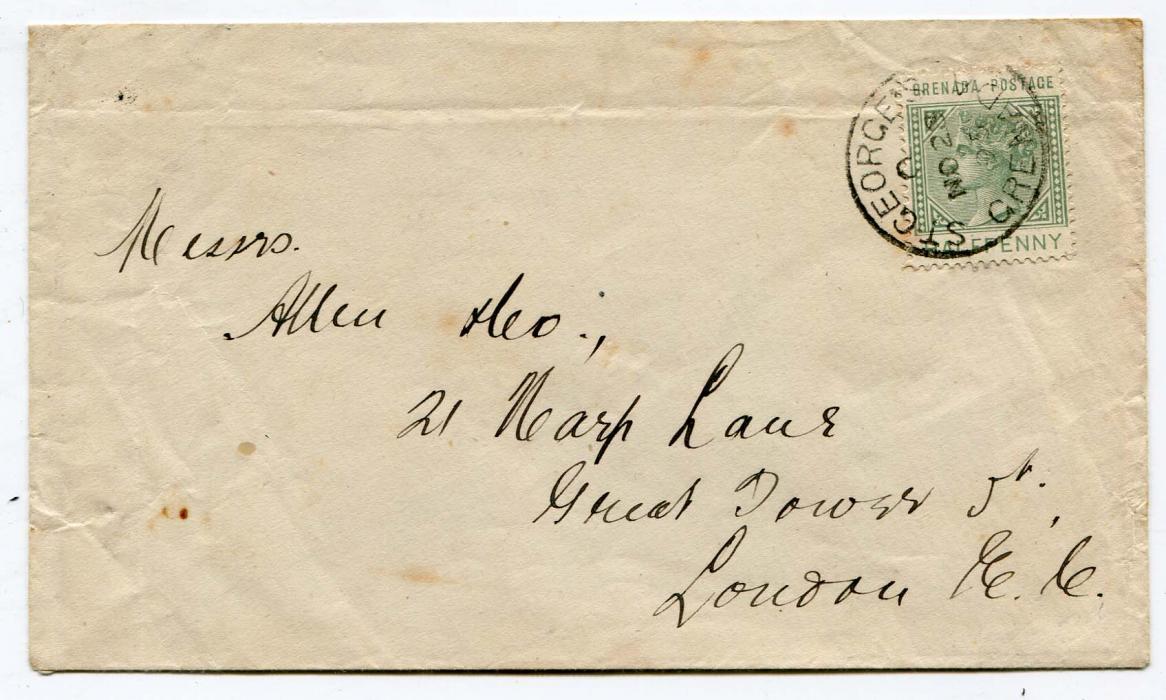 GRENADA POSTAGE
HALFPENNY
ST GEORGE'S
GRENADA
C
NO 2
Messrs.
Allen & Co.,
21 Harp Lane
Great Tower St.,
London E. C.